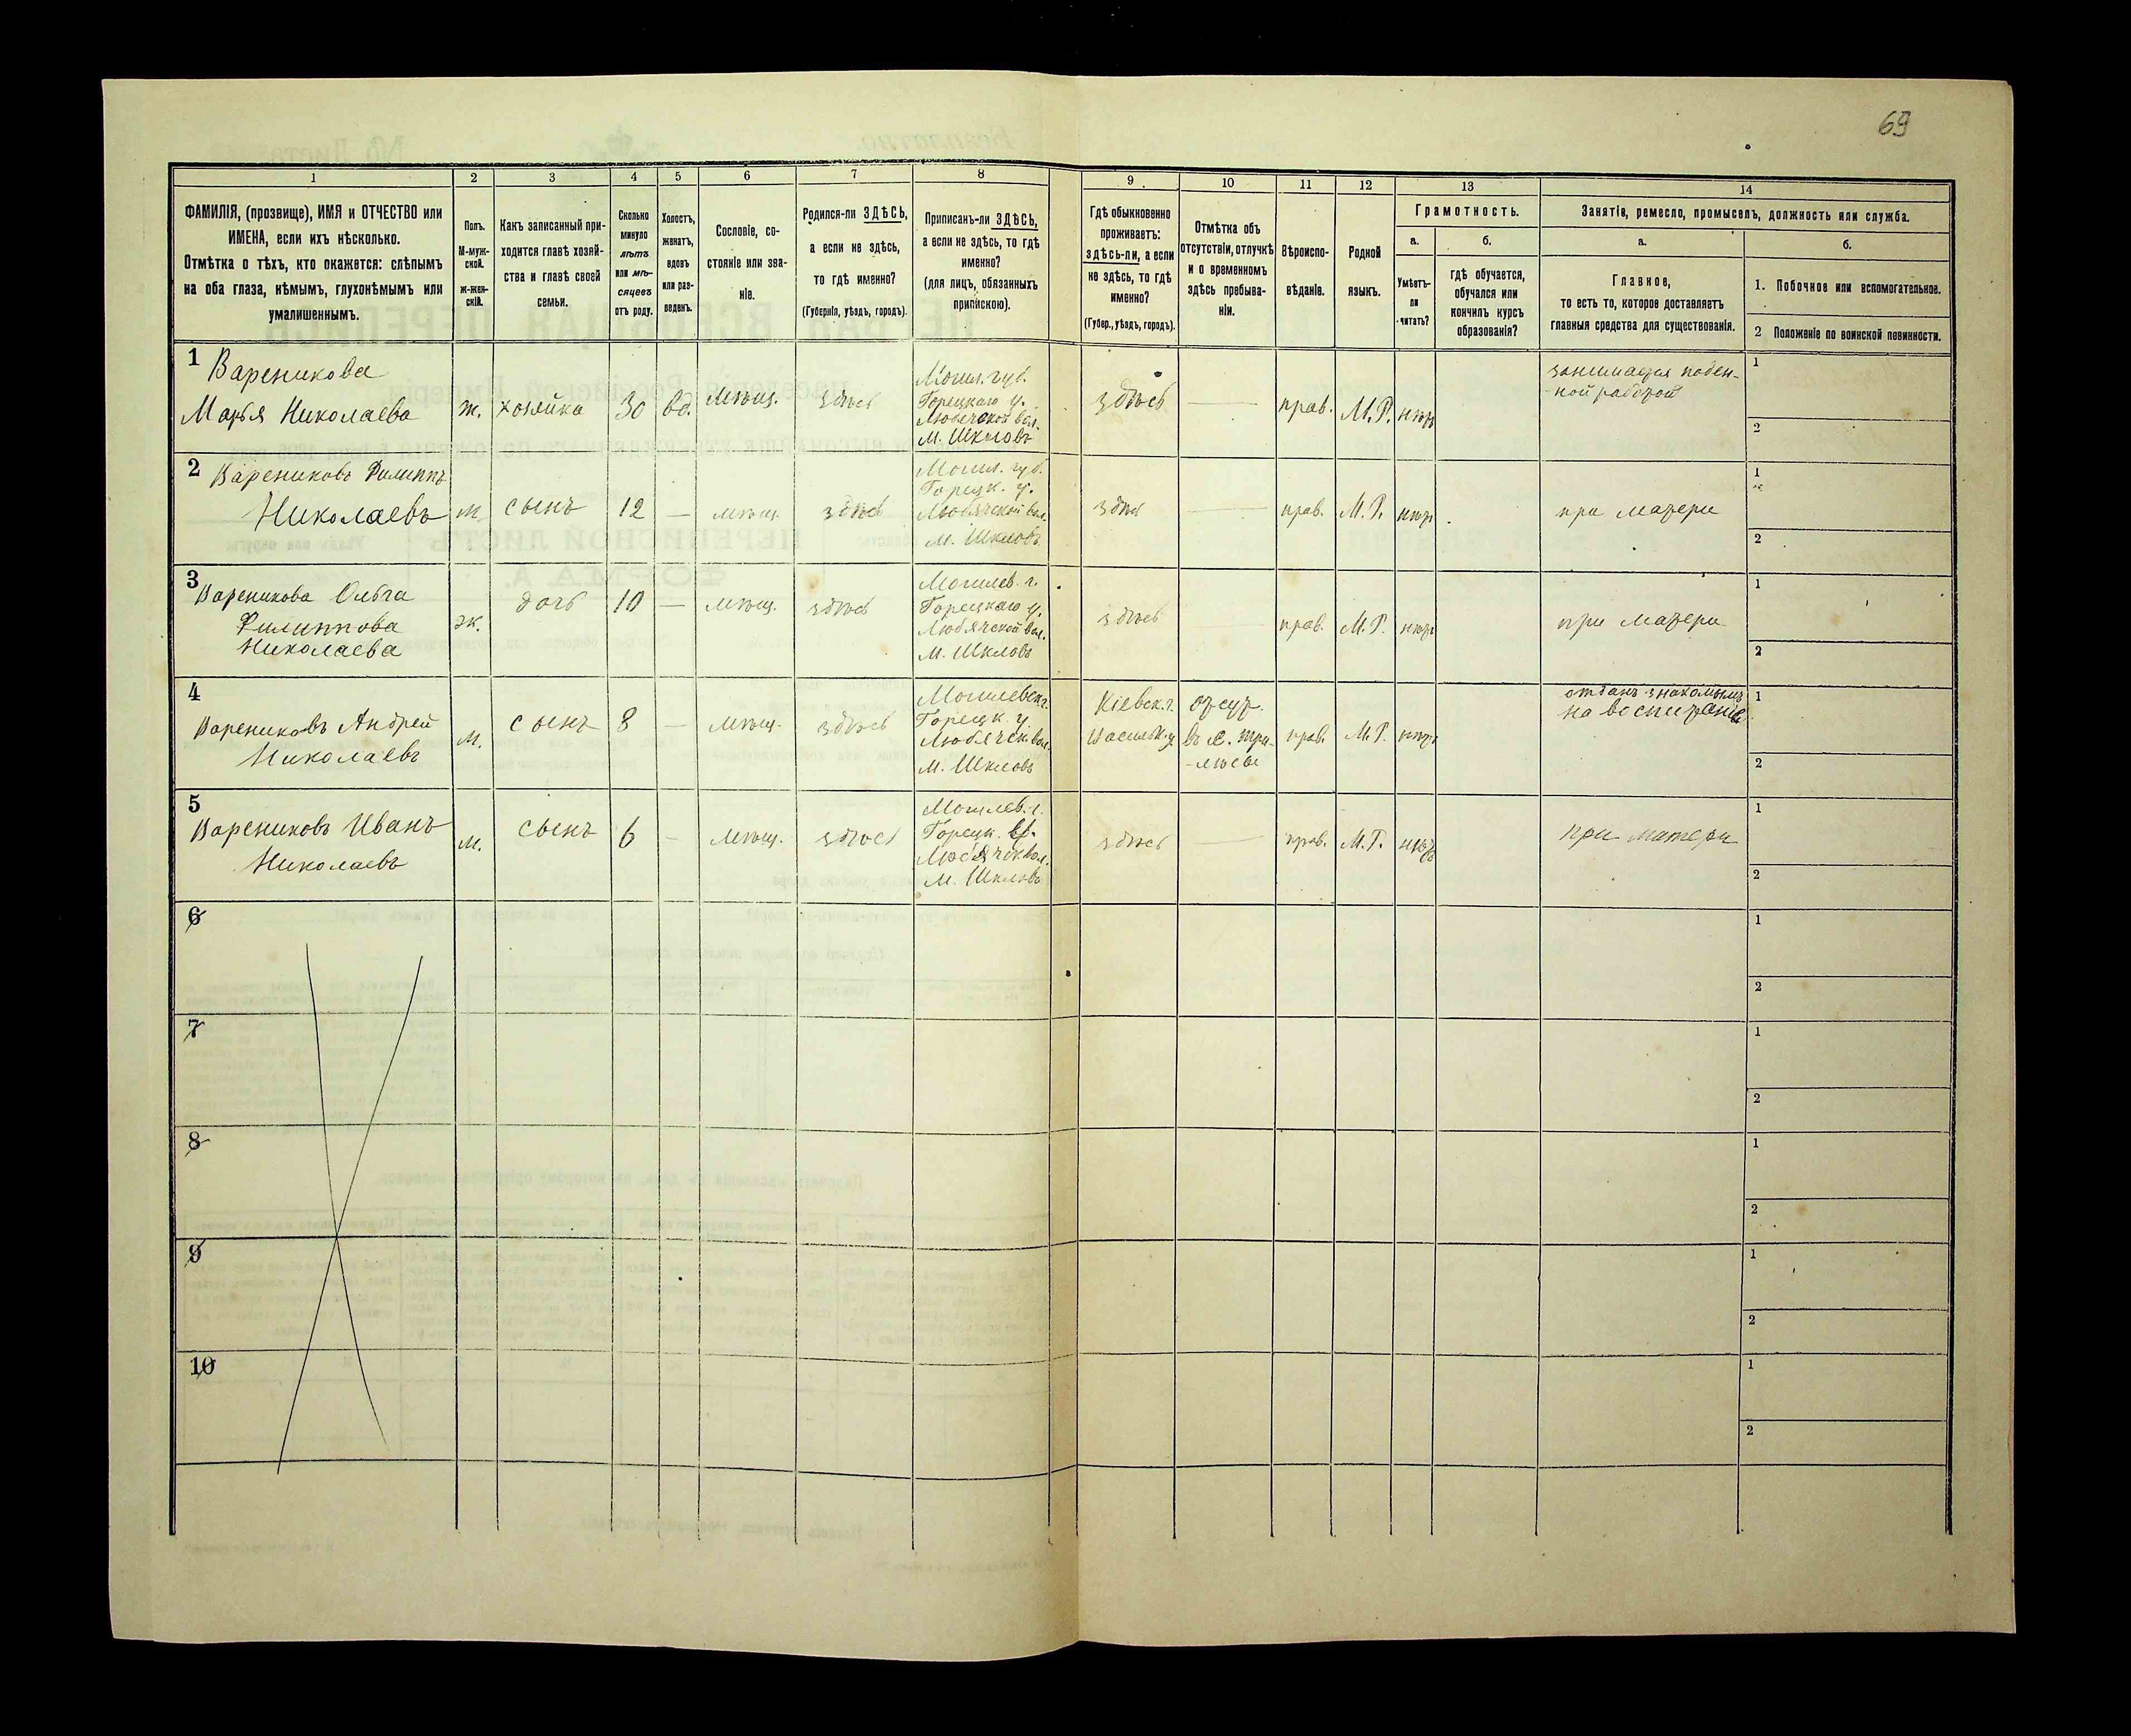 69
1
2
3
4
5
6
7
8
9
10
11
12
13
14
ФАМИЛІЯ, (прозвище), ИМЯ и ОТЧЕСТВО или
ИМЕНА, если ихъ нѣсколько.
Отмѣтка о тѣхъ, кто окажется: слѣпымъ
на оба глаза, нѣмымъ, глухонѣмымъ или
умалишеннымъ.
Полъ.
М-муж-
ской.
ж-жен-
скій.
Какъ записанный при-
ходится главѣ хозяй-
ства и главѣ своей
семьи.
Сколько
минуло
лѣтъ
или мѣ-
сяцевъ
отъ роду.
Холостъ,
женатъ,
вдовъ
или раз-
веденъ.
Сословіе, со-
стояніе или зва-
ніе.
Родился-ли ЗДѢСЬ,
а если не здѣсь,
то гдѣ именно?
(Губернія, уѣздъ, городъ).
Приписанъ-ли ЗДѢСЬ,
а если не здѣсь, то гдѣ
именно?
(для лицъ, обязанныхъ
припискою).
Гдѣ обыкновенно
проживаетъ:
здѣсь-ли, а если
не здѣсь, то гдѣ
именно?
(Губер., уѣздъ, городъ).
Отмѣтка объ
отсутствіи, отлучкѣ
и о временномъ
здѣсь пребыва-
ніи.
Вѣроиспо-
вѣданіе.
Родной
языкъ.
Грамотность.
а.
б.
Умѣетъ-
ли
читать?
гдѣ обучается,
обучался или
кончилъ курсъ
образованія?
Занятіе, ремесло, промыселъ, должность или служба.
а.
б.
Главное,
то есть то, которое доставляетъ
главныя средства для существованія.
1. Побочное или вспомогательное.
2 Положеніе по воинской повинности.
1 Вареникова
Марья Николаева
ж.
хозяйка
30
вд.
мѣщ.
здѣсь
Могил. губ.
Горецкаго у.
м. Шкловъ
здѣсь
прав.
М.Р.
нѣтъ
занимается поден-
-ной работой
1
2
2 Варениковъ Филиппъ
Николаевъ
м.
сынъ
12
—
мѣщ.
здѣсь
Могил. губ.
Горецк. у.
м. Шкловъ
здѣсь
—
прав.
М.Р.
нѣтъ
при матери
1
2
3 Вареникова Ольга
Филиппова
Николаева
ж.
дочь
10
—
мѣщ.
здѣсь
Могилев. г.
Горецкаго у.
м. Шкловъ
здѣсь
прав.
М.Р.
нѣтъ
при матери
1
2
4
Варениковъ Андрей
Николаевъ
м.
сынъ
8
—
мѣщ.
здѣсь
Могилевск г.
Горецк. у.
м. Шкловъ
Кіевск. г.
отсут.
въ с. Три-
-лѣсы
прав.
М.Р.
нѣтъ
отданъ знакомымъ
на воспитаніе
1
2
5
Варениковъ Иванъ
Николаевъ
м.
сынъ
6
—
мѣщ.
здѣсь
Могилев. г.
Горецк. у.
м. Шкловъ
здѣсь
—
прав.
М.Р.
нѣтъ
при матери
1
2
6
1
2
7
1
2
8
1
2
9
1
2
10
1
2